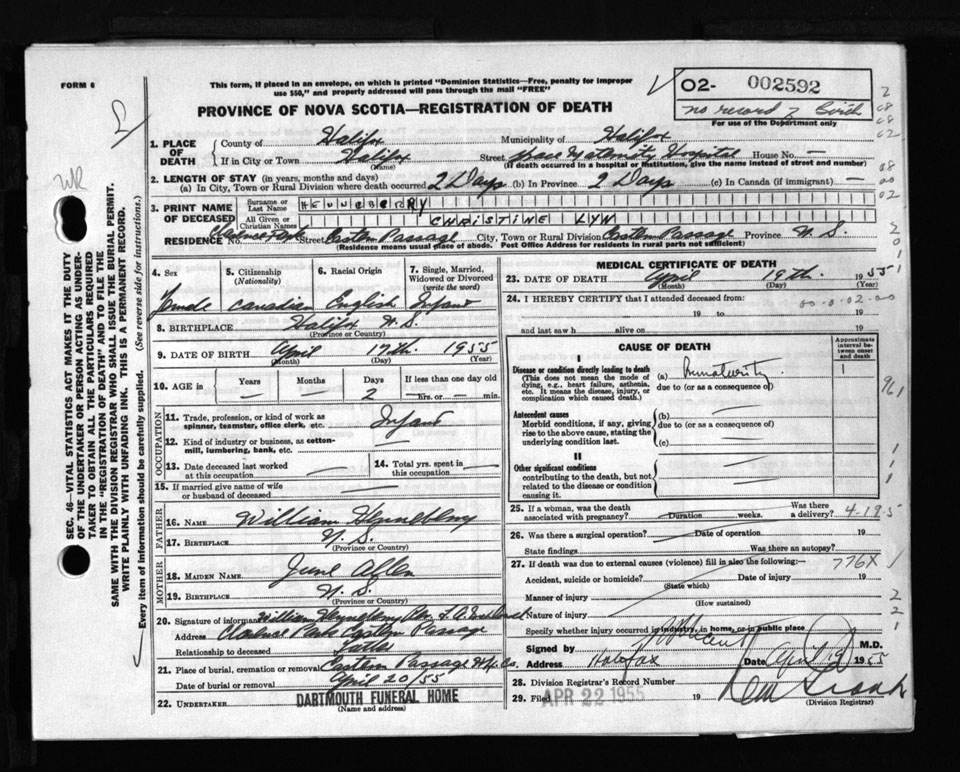 FORM 6
This form, if placed in an envelope, on which is printed "Dominion Statistics—Free, penalty for improper
use $50," and properly addressed will pass through the mail "FREE"
02- 002592
no record of Birth
For use of the Department only
PROVINCE OF NOVA SCOTIA—REGISTRATION OF DEATH
1. PLACE OF DEATH
County of Halifax Municipality of Halifax
If in City or Town Halifax Street Grace Maternity Hospital House No. —
(Name) (If death occurred in a hospital or institution, give the name instead of street and number)
2. LENGTH OF STAY (in years, months and days)
(a) In City, Town or Rural Division where death occurred 2 Days (b) In Province 2 Days (c) In Canada (if immigrant) —
3. PRINT NAME OF DECEASED
Surname or Last Name HENNEBERRY
All Given or Christian Names CHRISTINE LYN
RESIDENCE No. Clarence Park Street Eastern Passage City, Town or Rural Division Eastern Passage Province N. S.
(Residence means usual place of abode. Post Office Address for residents in rural parts not sufficient)
4. Sex
Female
5. Citizenship
(Nationality)
Canadian
6. Racial Origin
English
7. Single, Married, Widowed or Divorced
(write the word)
Infant
8. BIRTHPLACE Halifax N. S.
(Province or Country)
9. DATE OF BIRTH April 17th 1955
(Month) (Day) (Year)
10. AGE in Years Months Days If less than one day old
— — 2 — hrs. or — min.
OCCUPATION
11. Trade, profession, or kind of work as
spinner, teamster, office clerk, etc. Infant
12. Kind of industry or business, as cotton-
mill, lumbering, bank, etc.
13. Date deceased last worked
at this occupation
14. Total yrs. spent in
this occupation
15. If married give name of wife
or husband of deceased
FATHER
16. NAME William Henneberry
17. BIRTHPLACE N. S.
(Province or Country)
MOTHER
18. MAIDEN NAME June Allen
19. BIRTHPLACE N. S.
(Province or Country)
20. Signature of informant William Henneberry Per.
Address Clarence Park Eastern Passage
Relationship to deceased Father
21. Place of burial, cremation or removal Eastern Passage Hfx. Co.
Date of burial or removal April 20/55
22. UNDERTAKER DARTMOUTH FUNERAL HOME
(Name and address)
MEDICAL CERTIFICATE OF DEATH
23. DATE OF DEATH April 19th. 1955
(Month) (Day)
24. I HEREBY CERTIFY that I attended deceased from:
19 to 19
and last saw h alive on 19
CAUSE OF DEATH
Approximate interval between onset and death
I
Disease or condition directly leading to death
(This does not mean the mode of
dying, e.g., heart failure, asthenia,
etc. It means the disease, injury, or
complication which caused death.)
(a) Immaturity
due to (or as a consequence of)
Antecedent causes
Morbid conditions, if any, giving
rise to the above cause, stating the
underlying condition last.
(b) —
due to (or as a consequence of)
(c) —
II
Other significant conditions
contributing to the death, but not
related to the disease or condition
causing it.
25. If a woman, was the death
associated with pregnancy? Duration weeks. Was there a delivery?
4-19-5
26. Was there a surgical operation? Date of operation 19
State findings Was there an autopsy?
27. If death was due to external causes (violence) fill in also the following:—
776X
Accident, suicide or homicide? Date of injury 19
(State which)
Manner of injury
(How sustained)
Nature of injury
Specify whether injury occurred in industry, in home, or in public place
Signed by M.D.
Address Halifax Date April 19 1955
28. Division Registrar's Record Number
29. Filed APR 22 1955 19
(Division Registrar)
SEC. 46—VITAL STATISTICS ACT MAKES IT THE DUTY
OF THE UNDERTAKER OR PERSON ACTING AS UNDER-
TAKER TO OBTAIN ALL THE PARTICULARS REQUIRED
IN THE "REGISTRATION OF DEATH" AND TO FILE THE
SAME WITH THE DIVISION REGISTRAR WHO SHALL ISSUE THE BURIAL PERMIT.
WRITE PLAINLY WITH UNFADING INK. THIS IS A PERMANENT RECORD.
Every item of information should be carefully supplied. (See reverse side for instructions.)